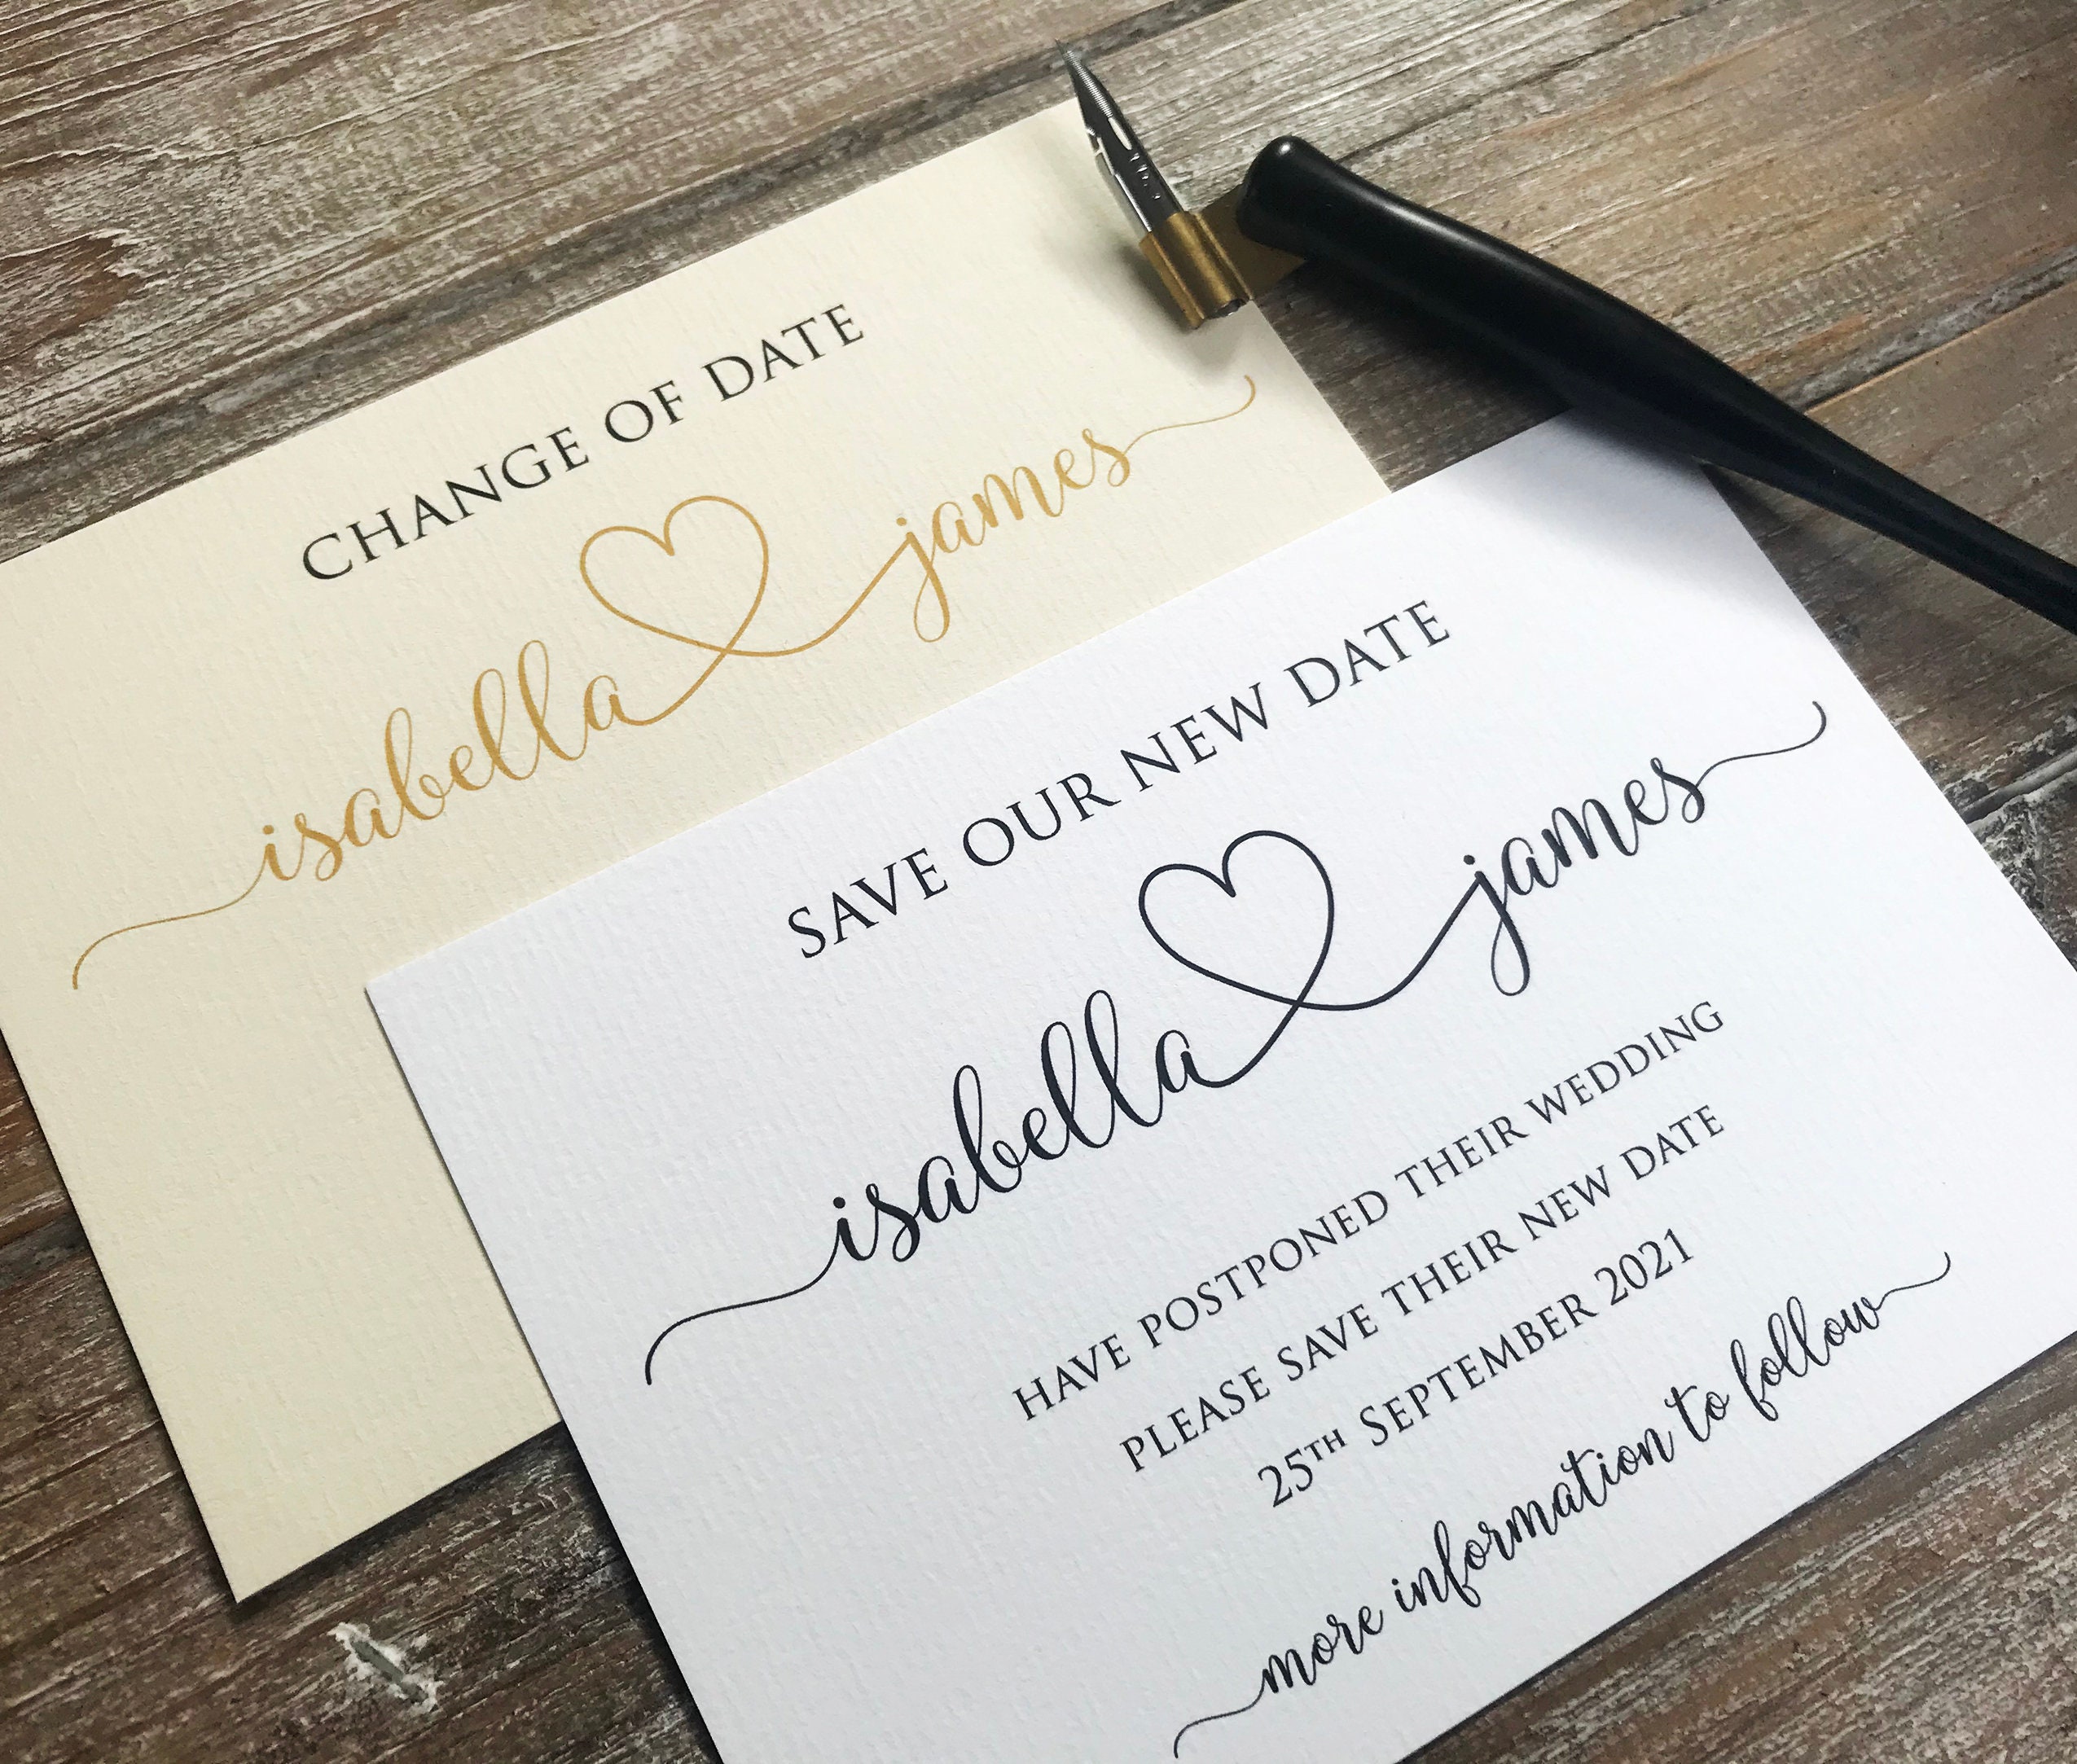 CHANGE OF DATE
isabella james
SAVE OUR NEW DATE
isabella james
HAVE POSTPONED THEIR WEDDING
PLEASE SAVE THEIR NEW DATE
25TH SEPTEMBER 2021
more information to follow